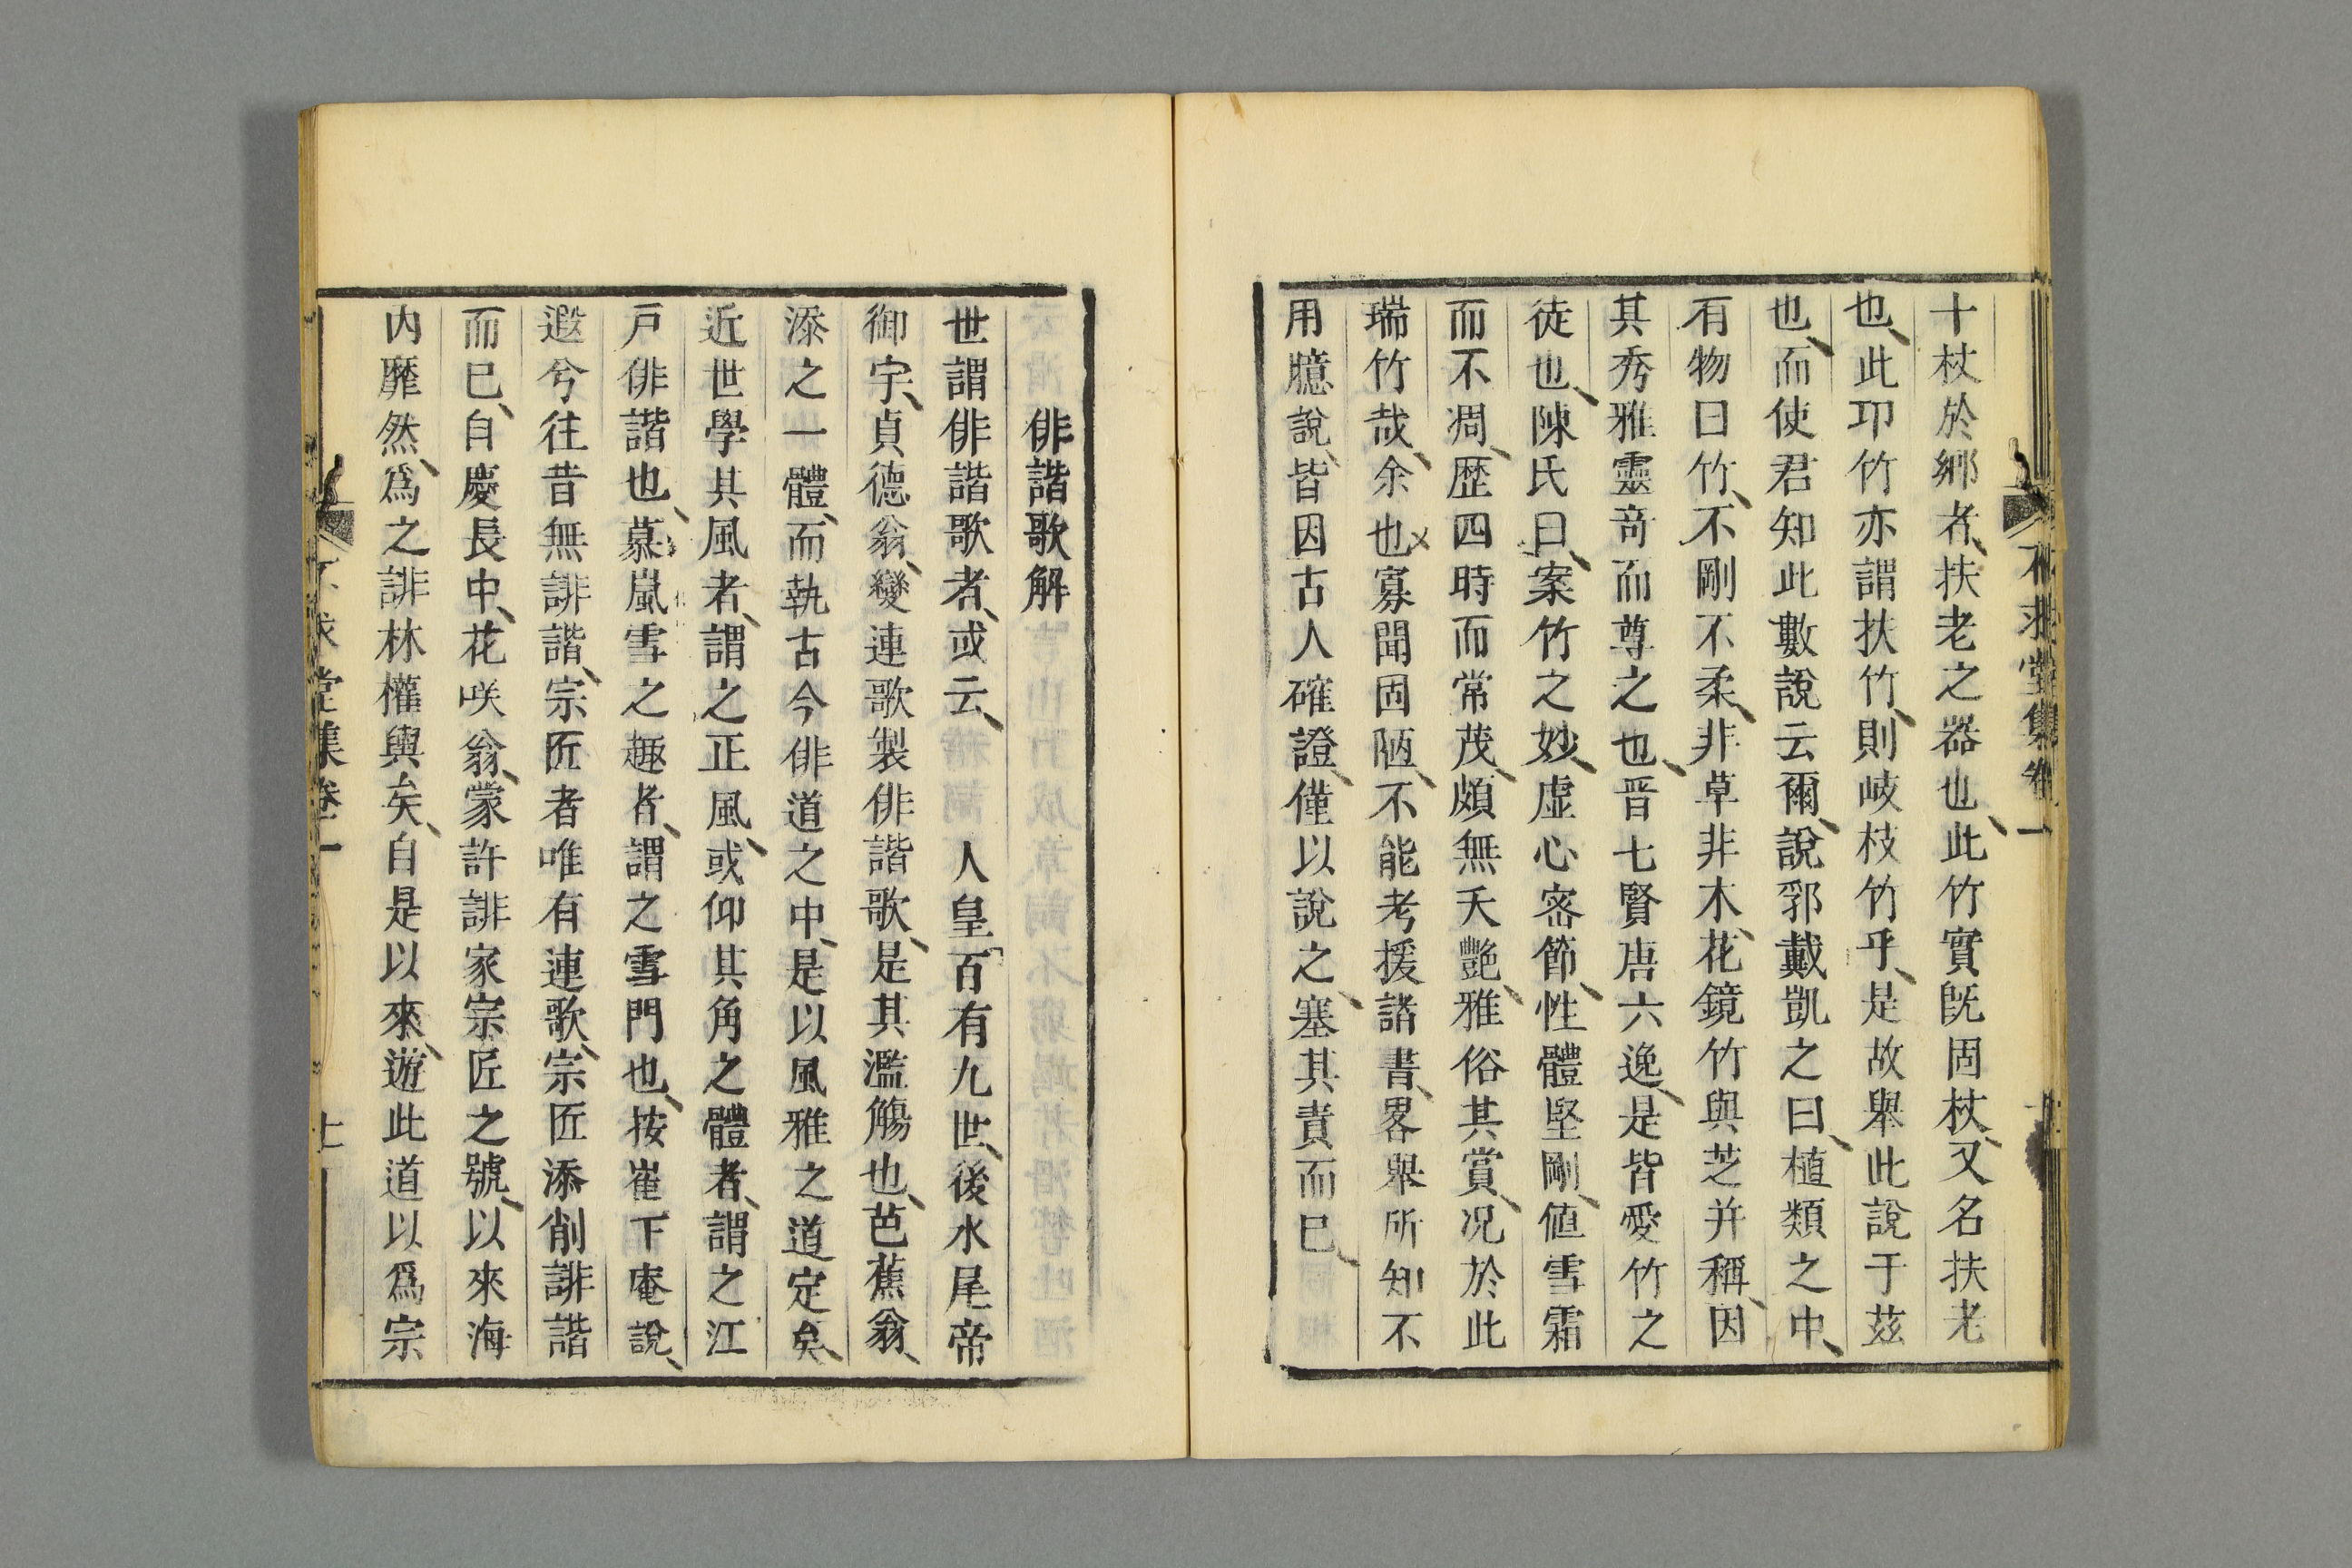 不求堂集卷一
十杖於鄉者、扶老之器也、此竹實既固杖、又名扶老
也、此卭竹亦謂扶竹、則岐枝竹乎、是故舉此說于茲
也、而使君知此數說云爾、說郛戴凱之曰、植類之中、
有物曰竹、不剛不柔、非草非木、花鏡竹與芝并稱、因
其秀雅靈奇而尊之也、晋七賢唐六逸、是皆愛竹之
徒也、陳氏曰、案竹之妙、虛心密節、性體堅剛、値雪霜
而不凋、歷四時而常茂、頗無夭艷、雅俗其賞、况於此
瑞竹哉、余也寡聞固陋、不能考援諸書、畧舉所知不
用臆說、皆因古人確證、僅以說之、塞其責而已、
俳諧歌解
世謂俳諧歌者、或云、人皇百有九世、後水尾帝
御宇、貞德翁、變連歌製俳諧歌、是其濫觴也、芭蕉翁、
添之一體、而執古今俳道之中、是以風雅之道定矣、
近世學其風者、謂之正風、或仰其角之體者、謂之江
戸俳諧也、慕嵐雪之趣者、謂之雪門也、按崔下庵說、
遐兮往昔無誹諧、宗匠者唯有連歌、宗匠添削誹諧
而已、自慶長中、花咲翁、蒙許誹家宗匠之號、以來海
内靡然、爲之誹林權輿矣、自是以來、遊此道以爲宗
不求堂集卷一
七